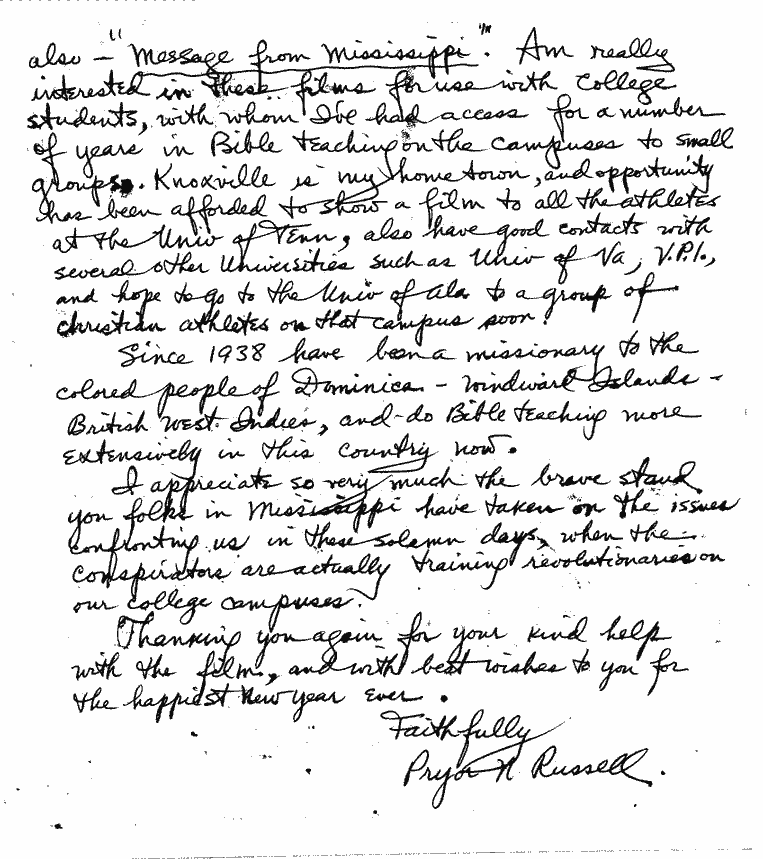 also - "Message from Mississippi". Am really
interested in these films for use with College
students, with whom I've had access for a number
of years in Bible teaching on the campuses to small
groups. Knoxville is my home town, and opportunity
has been afforded to show a film to all the athletes
at the Univ of Tenn, also have good contacts with
several other Universities such as Univ of Va, V.P.I.,
and hope to go to the Univ of Ala to a group of
christian athletes on that campus soon.
Since 1938 have been a missionary to the
colored people of Dominica - Windward Islands -
British West Indies, and do Bible teaching more
extensively in this country now.
I appreciate so very much the brave stand
you folks in Mississippi have taken on the issues
confronting us in these solemn days, when the
conspirators are actually training revolutionaries on
our college campuses.
Thanking you again for your kind help
with the film, and with best wishes to you for
the happiest New Year ever.
Faithfully
Pryor N Russell.